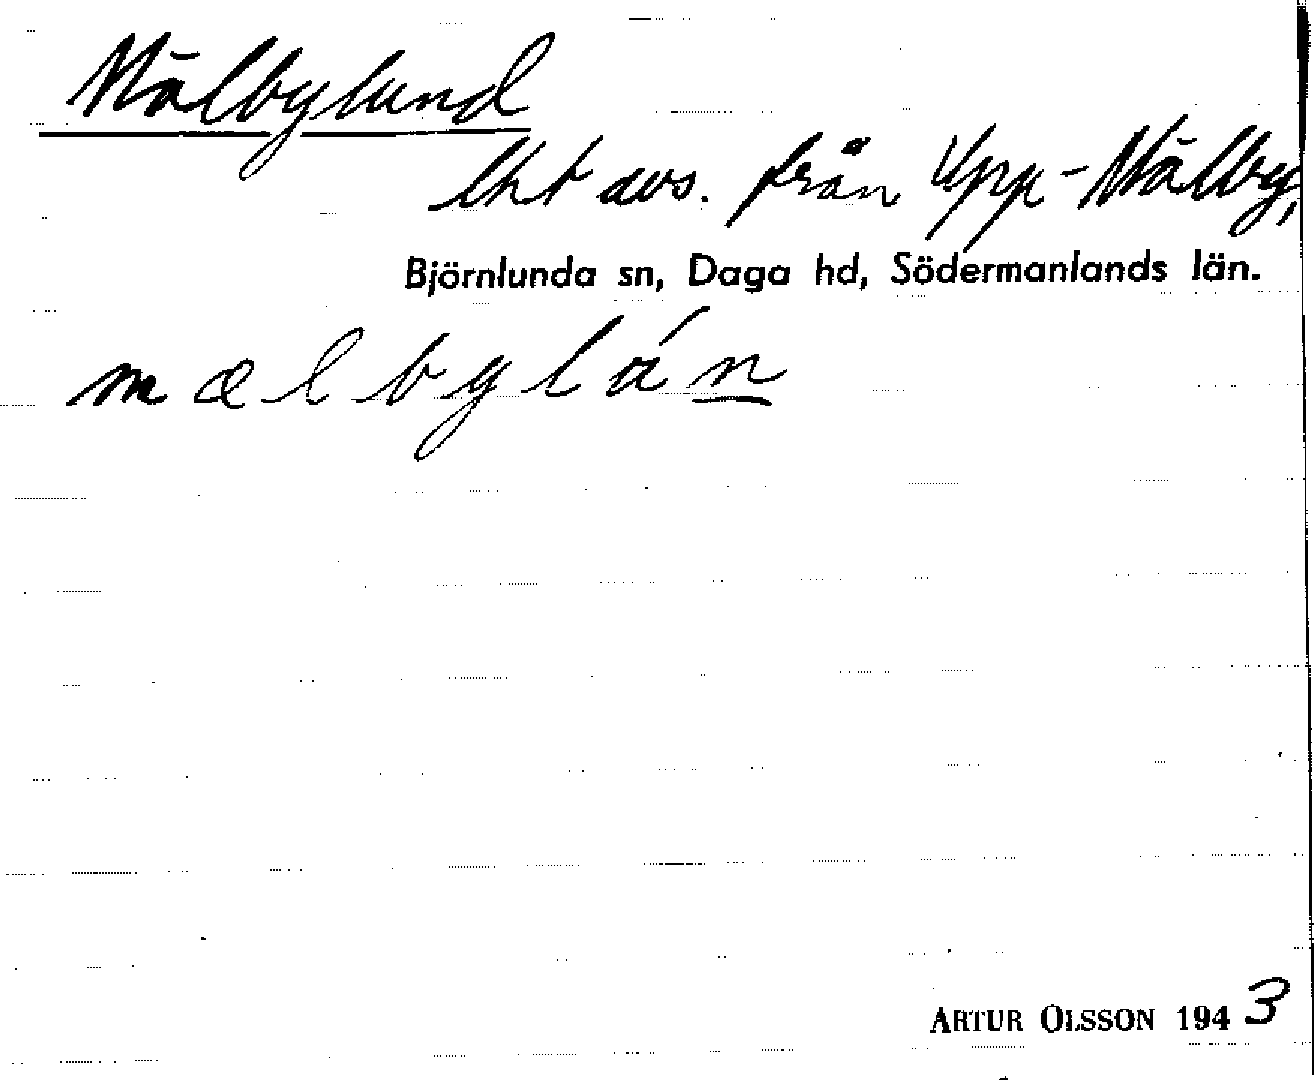 Mälbylund
lht avs. från Upp-Mälby,
Björnlunda sn, Daga hd, Södermanlands län.
mælbylán
ARTUR OLSSON 1943